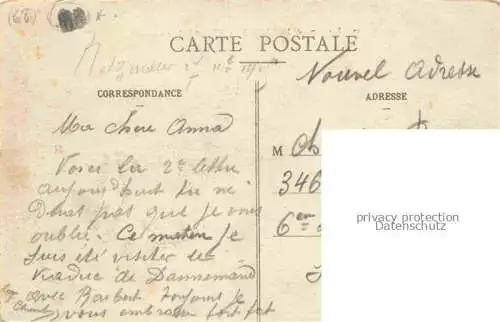 (68)
CARTE POSTALE
Nouvel Adresse
CORRESPONDANCE
ADRESSE
Ma chere Anna
M
Voici la 2e lettre
346
aujourd'hui tu ne
privacy protection
Datenschutz
Diras pas que je vous
6em
oublie. Ce matin je
suis été visiter le
Viaduc de Dannemarie
avec Barbert toujours je
vous embrasse fort fort